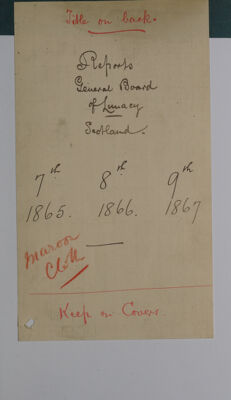 Title on back.
Reports
General Board
of Lunacy
Scotland.
7th 8th 9th
1865. 1866. 1867
Maroon
Cloth
Keep in Covers.